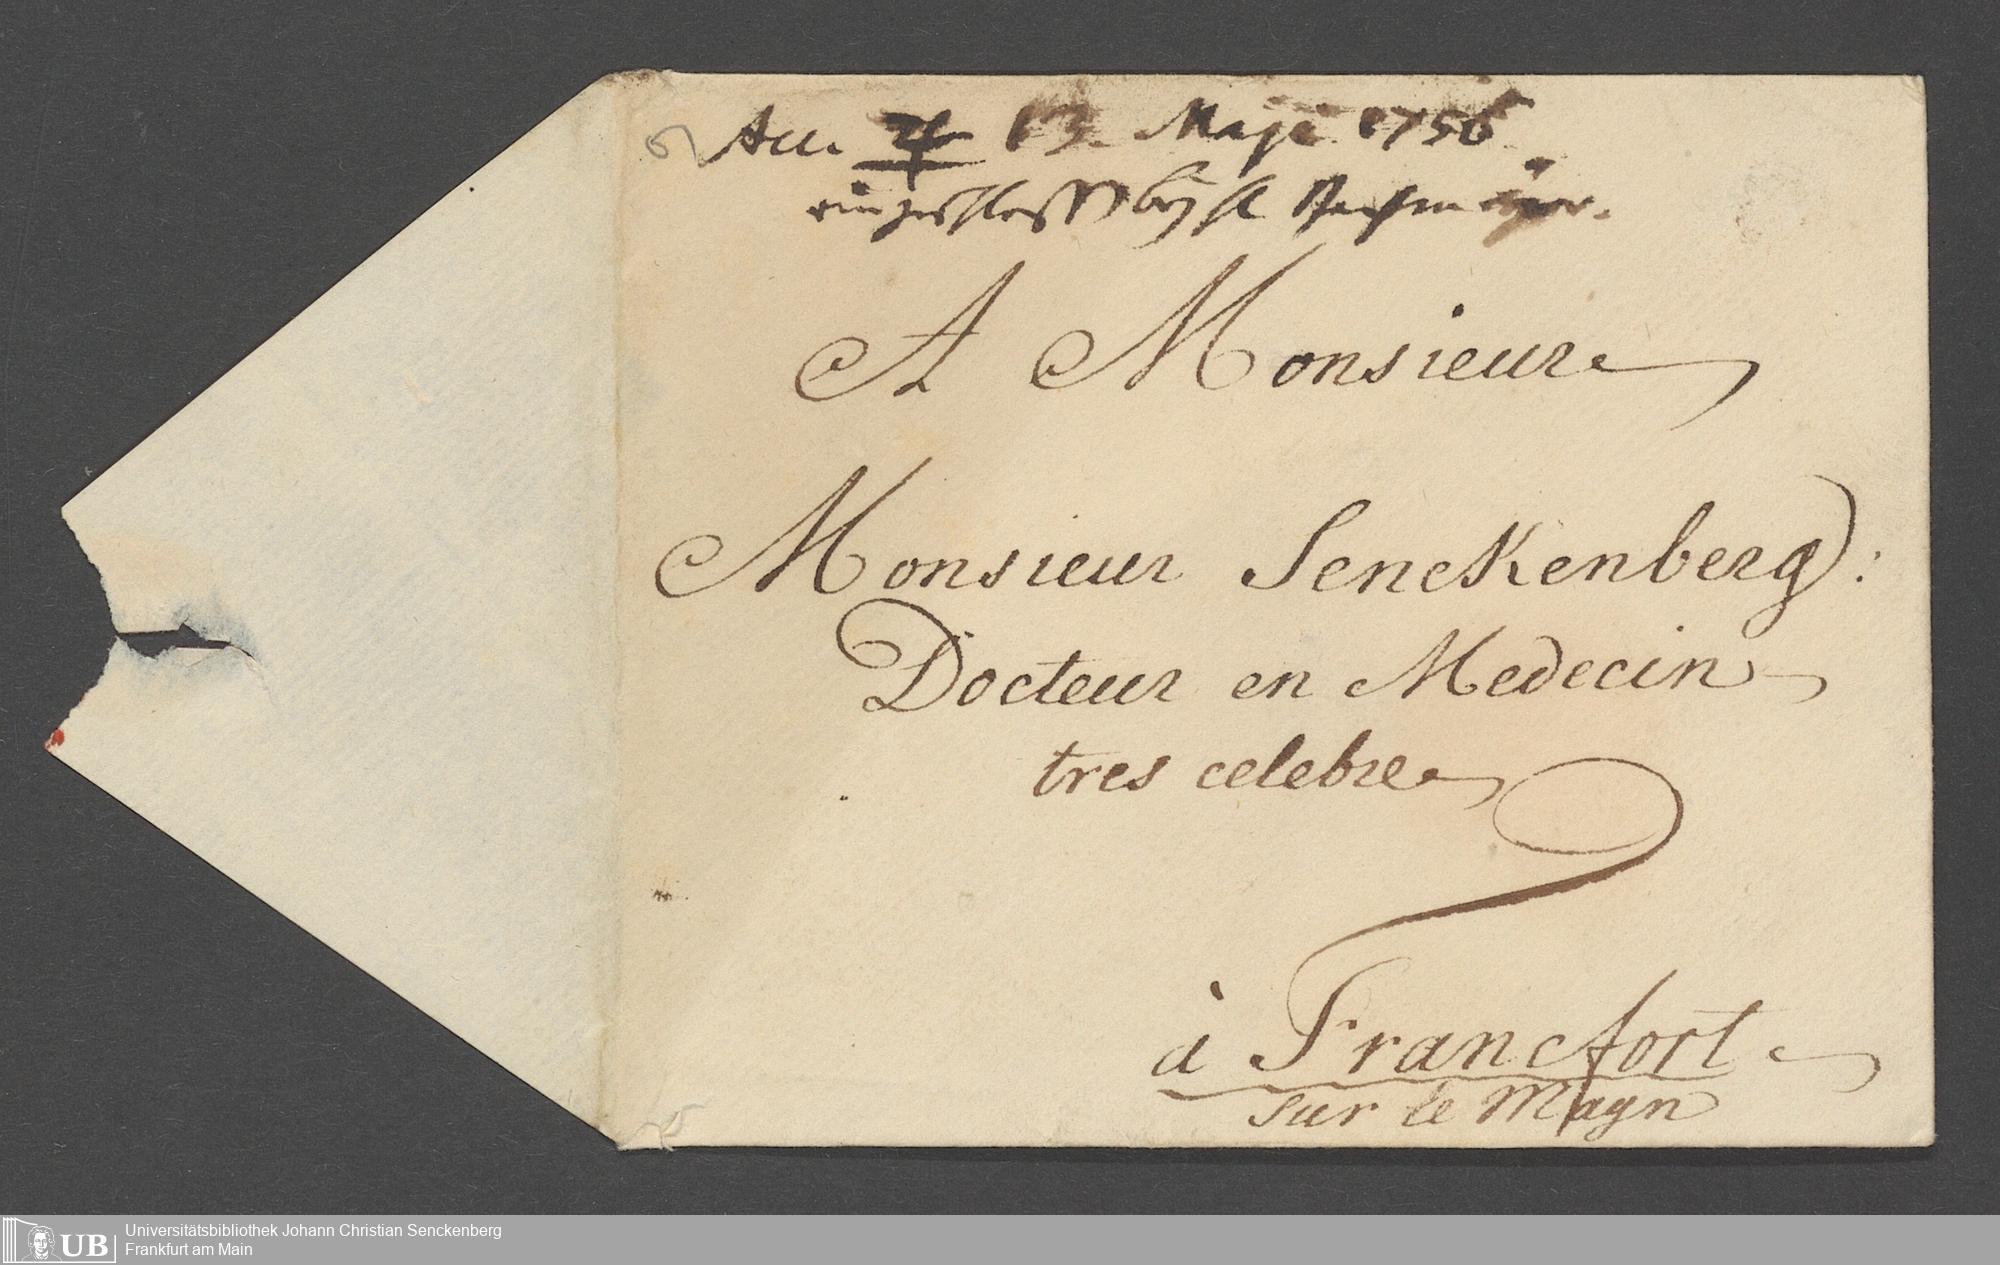 Acc. ♃ 13. Maji 1756.
eingeschlossen bey H
A Monsieur
Monsieur Senckenberg:
Docteur en Medecin
tres celebre
à Francfort
sur le Mayn
UB
Universitätsbibliothek Johann Christian Senckenberg
Frankfurt am Main